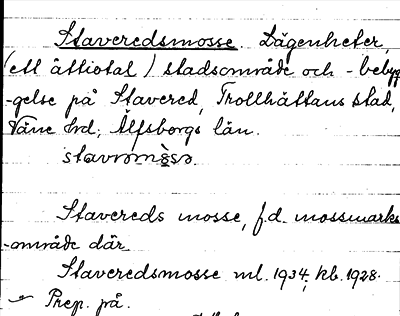 Staveredsmosse. Lägenheter,
(ett åttiotal) stadsområde och -bebyg
-gelse på Stavered, Trollhättans stad,
Väne hd, Älfsborgs län.
Stavereds mosse, f.d. mossmarks
-område där
Staveredsmosse ml. 1934; kb. 1928.
Prep. på.